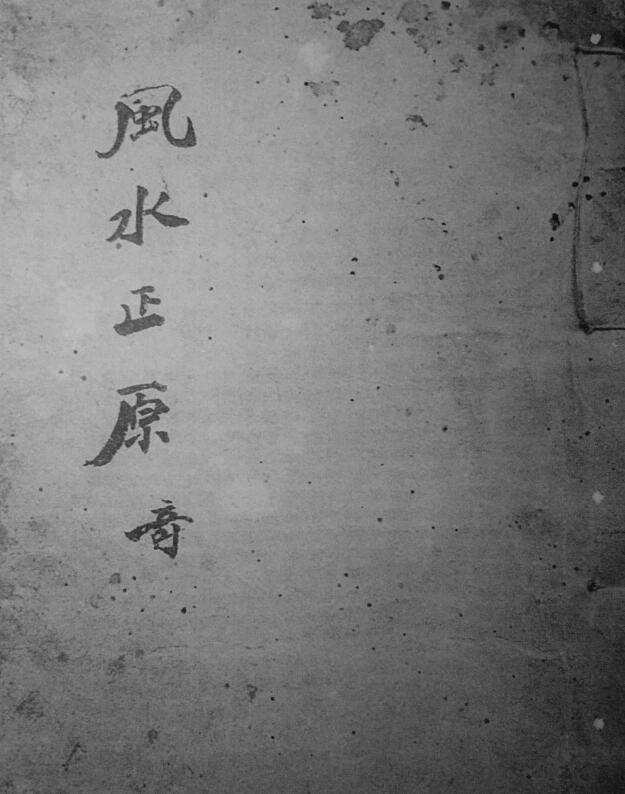 風水正原